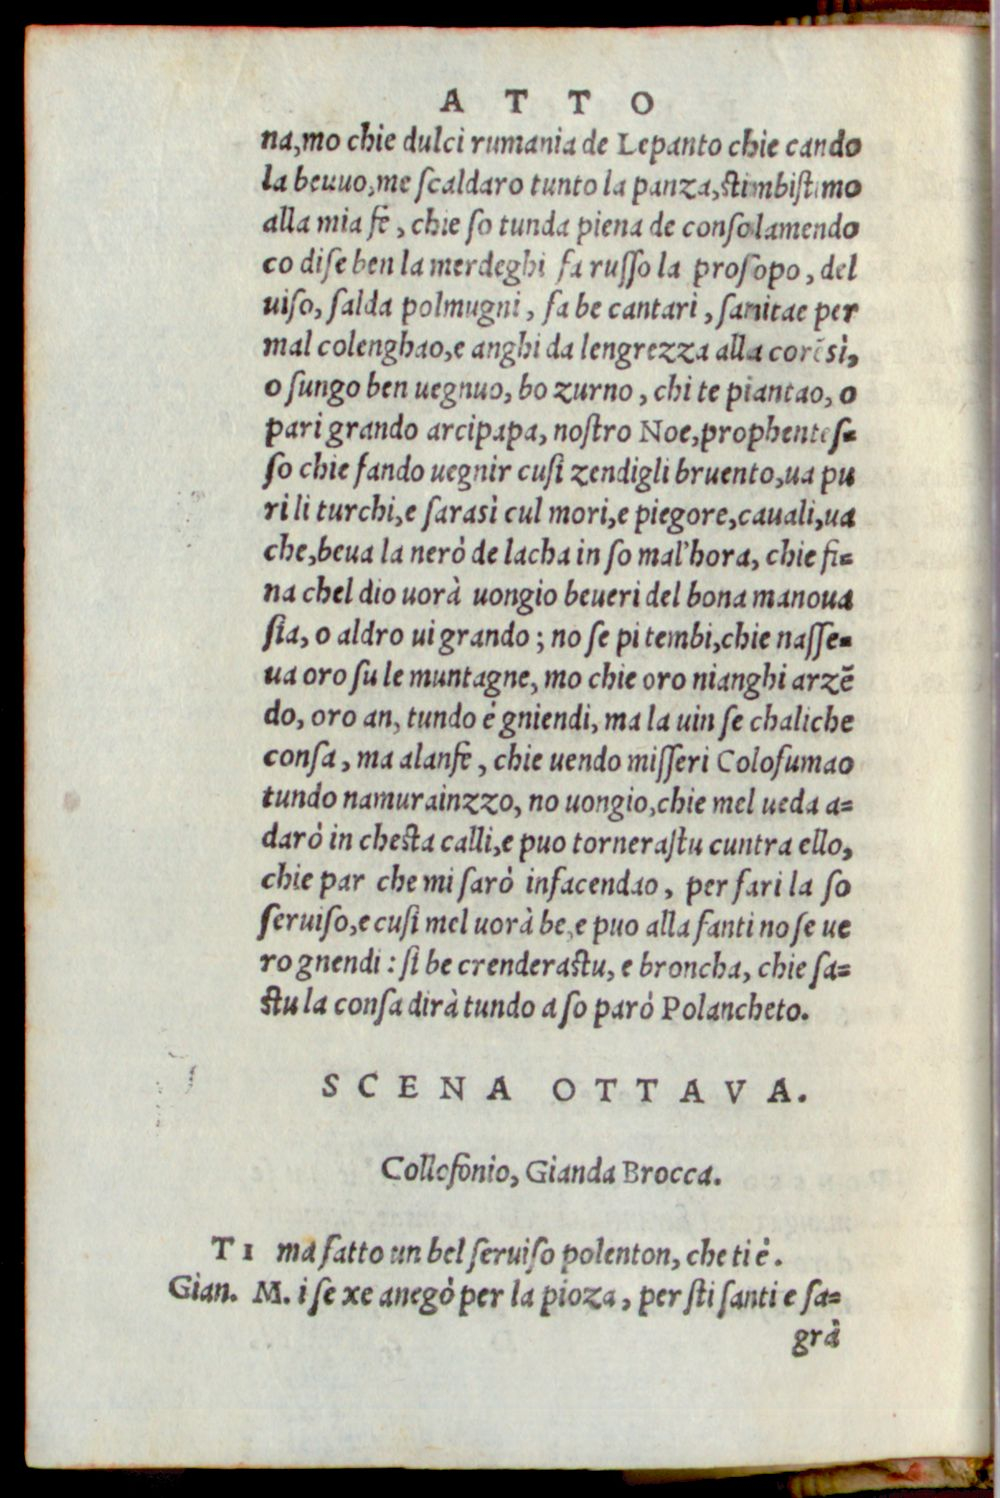 ATTO
na,mo chie dulci rumania de Lepanto chie cando
la beuuo,me ſcaldaro tunto la panza,ſtimbiſtimo
alla mia fè, chie ſo tunda piena de conſolamendo
co diſe ben la merdeghi fa ruſſo la proſopo, del
uiſo, ſalda polmugni, fa be cantari, ſanitae per
mal colenghao,e anghi da lengrezza alla corẽsì,
o ſungo ben uegnuo, bo zurno, chi te piantao, o
pari grando arcipapa, noſtro Noe,prophenteſ=
ſo chie fando uegnir cuſi zendigli bruento,ua pu
ri li turchi,e ſarasì cul mori,e piegore,cauali,ua
che,beua la nerò de lacha in ſo mal'hora, chie fi=
na chel dio uorà uongio beueri del bona manoua
ſia, o aldro ui grando; no ſe pi tembi,chie naſſe=
ua oro ſu le muntagne, mo chie oro nianghi arzẽ
do, oro an, tundo è gniendi, ma la uin ſe chaliche
conſa, ma alanfe, chie uendo miſſeri Coloſumao
tundo namurainzzo, no uongio,chie mel ueda a=
darò in cheſta calli,e puo torneraſtu cuntra ello,
chie par che mi ſarò infacendao, per fari la ſo
ſeruiſo,e cuſi mel uorà be,e puo alla fanti no ſe ue
ro gnendi: ſi be crenderaſtu, e broncha, chie ſa=
ſtu la conſa dirà tundo a ſo parò Polancheto.
SCENA OTTAVA.
Collofonio, Gianda Brocca.
TI ma fatto un bel ſeruiſo polenton, che ti è.
Gian. M. i ſe xe anegò per la pioza, per ſti ſanti e ſa=
grà